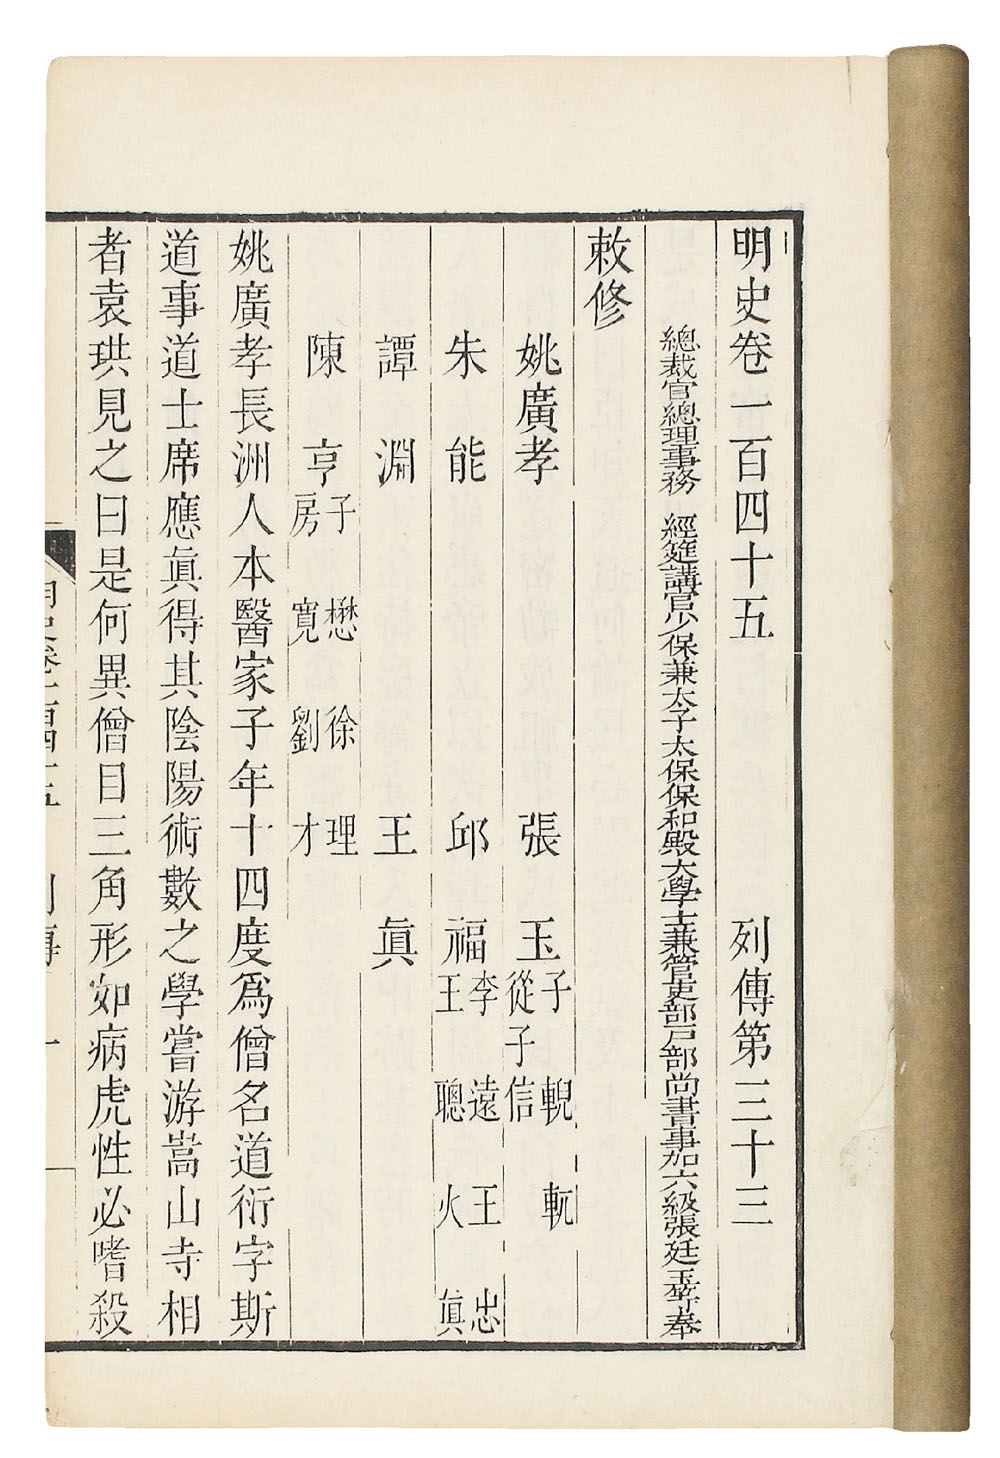 明史卷一百四十五 列傳第三十三
總裁官總理事務 經筵講官少保兼太子太保保和殿大學士兼管吏部戶部尚書事加六級張廷玉等奉
敕修
姚廣孝 張玉 子輗 軏 從子信
朱能 邱福 李遠 王忠 王聰 火眞
譚淵 王眞
陳亨 子懋 徐理 房寬 劉才
姚廣孝長洲人本醫家子年十四度爲僧名道衍字斯
道事道士席應眞得其陰陽術數之學嘗游嵩山寺相
者袁珙見之曰是何異僧目三角形如病虎性必嗜殺